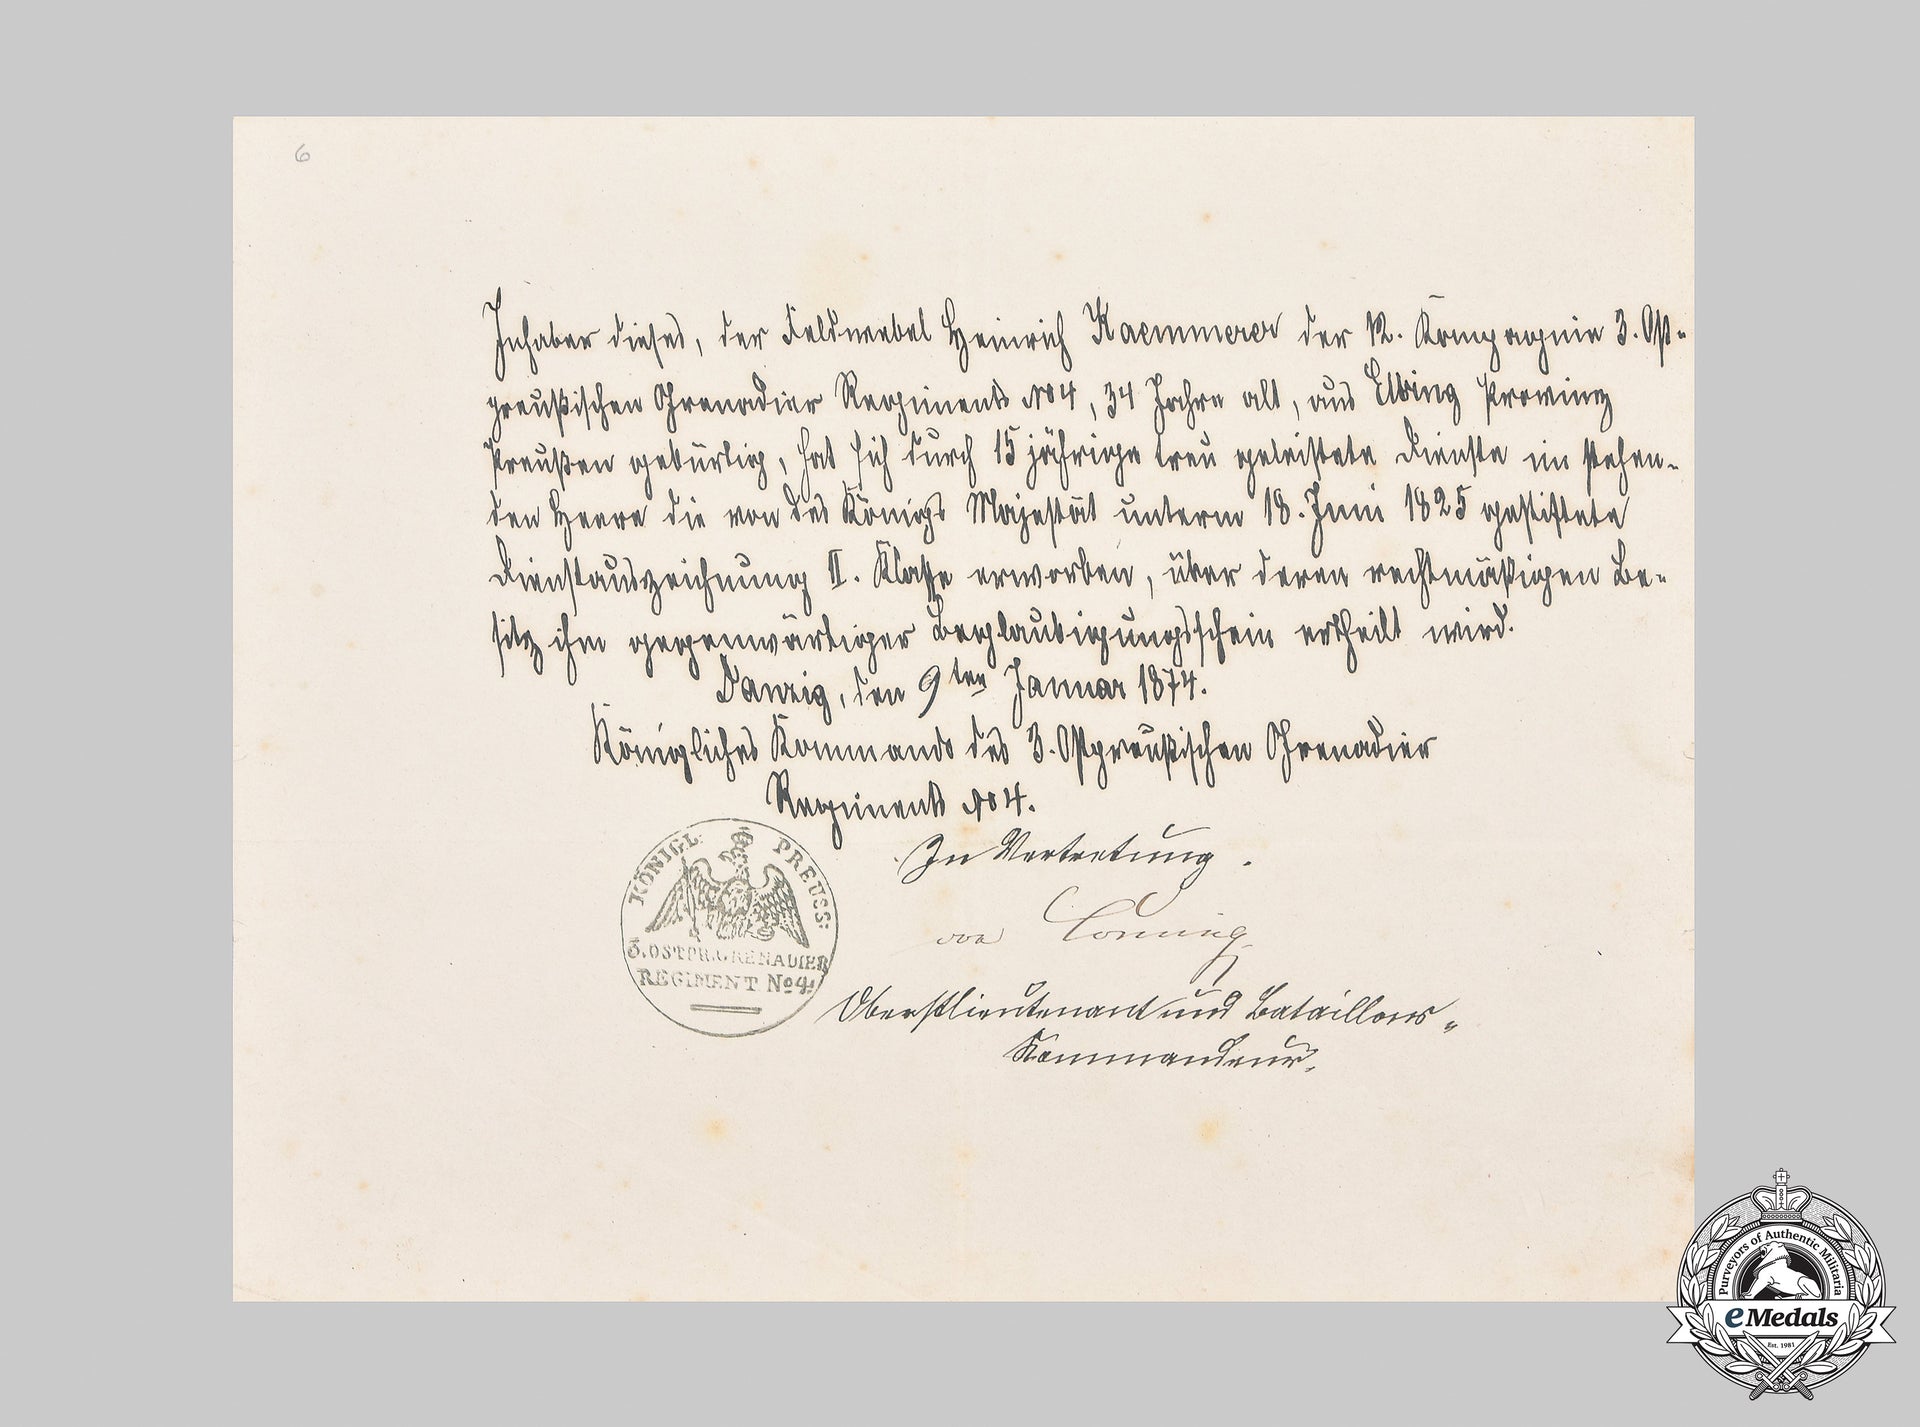 6
Inhaber dieses, der Feldwebel Heinrich Kaemmerer der 12. Kompagnie 3. Ost-
preußischen Grenadier Regiments No 4, 34 Jahre alt, aus Elbing Provinz
Preußen gebürtig, hat sich durch 15 jährige treu geleistete Dienste im stehen-
den Heere die von des Königs Majestät unterm 18. Juni 1825 gestiftete
Dienstauszeichnung II. Klasse erworben, über deren rechtmäßigen Be-
sitz ihm gegenwärtiger Beglaubigungsschein ertheilt wird.
Danzig, den 9ten Januar 1874.
Königliches Kommando des 3. Ostpreußischen Grenadier
Regiments No 4.
KÖNIGL. PREUSS:
3. OSTPR. GRENADIER
REGIMENT No 4.
In Vertretung.
von
Oberstlieutenant und Bataillons-
Kommandeur.
Purveyors of Authentic Militaria
eMedals
Est. 1981